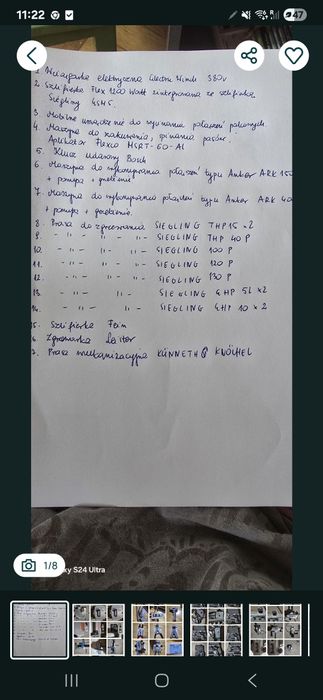 11:22
47
1. Wciągarka elektryczna Electric Winch 380v
2. Szlifierka Flex 1200 Watt zintegrowana ze szlifierką
Siegling GSMS.
3. Mobilne urządzenie do wycinania połączeń palcowych
4. Maszyna do zakuwania, spinania pasów.
Aplikator Flexco HSRT-60-A1
5. Klucz udarowy Bosch
6. Maszyna do wykonywania połączeń typu Anker ARK 150
+ pompa + grzebienie.
7. Maszyna do wykonywania połączeń typu Anker ARK 60
+ pompa + grzebienie.
8. Prasa do zgrzewania SIEGLING THP 15 x2
9. -"- -"- -"- SIEGLING THP 40 P
10. -"- -"- -"- SIEGLING 100 P
11. -"- -"- SIEGLING 120 P
12. -"- -"- SIEGLING 130 P
13. -"- -"- SIEGLING GHP SL x2
14. -"- -"- SIEGLING GHP 10 x2
15. Szlifierka Fein
6. Zgrzewarka Leister
7. Prasa wulkanizacyjna KÜNNETH & KNÖCHEL
1/8
xy S24 Ultra